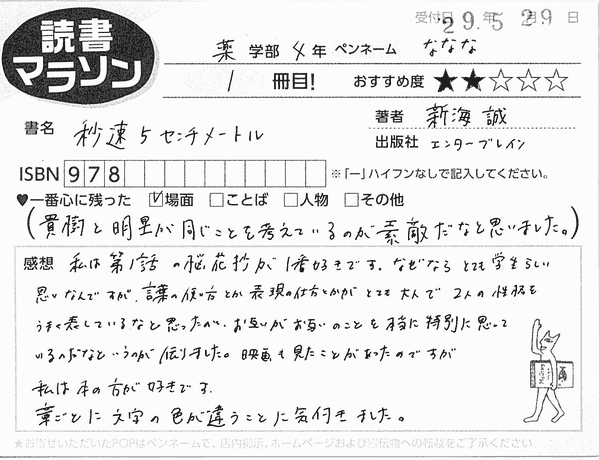 受付日 29年 5月 29日
読書
マラソン
薬 学部 4 年 ペンネーム ななな
1 冊目! おすすめ度 ★★☆☆☆
書名 秒速5センチメートル
著者 新海 誠
出版社 エンターブレイン
ISBN 978 ※「ー」ハイフンなしで記入してください。
♥一番心に残った ☑場面 □ことば □人物 □その他
(貴樹と明里が同じことを考えているのが素敵だなと思いました。)
感想 私は第1話の桜花抄が1番好きです。なぜなら とても学生らしい
思いなんですが、言葉の使い方とか表現の仕方とかがとても大人で2人の性格を
うまく表しているなと思ったのと、お互いがお互いのことを本当に特別に思って
いるのだなというのが伝わりました。映画も見たことがあったのですが
私は本の方が好きです。
章ごとに文字の色が違うことに気付きました。
★お寄せいただいたPOPはペンネームで、店内掲示、ホームページおよび宣伝物への転載をご了承ください